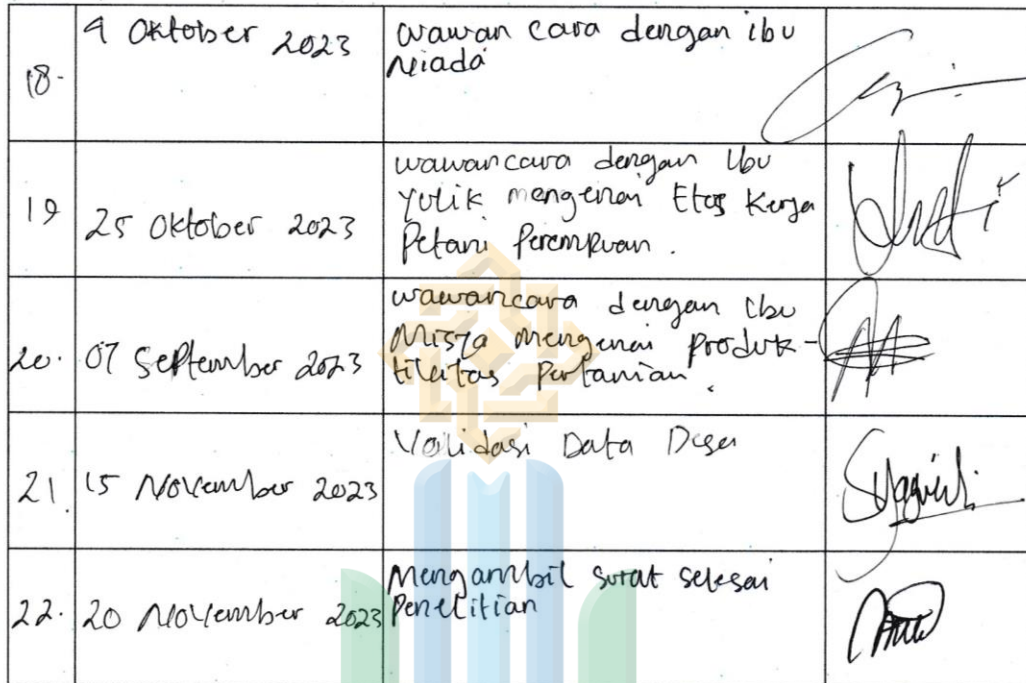 18. 9 Oktober 2023 wawan cara dengan ibu
Niada
19 25 Oktober 2023 wawancara dengan Ibu
Yulik mengenai Etos Kerja
Petani Perempuan.
20. 07 September 2023 wawancara dengan Ibu
Misja mengenai produk-
tifitas Pertanian.
21. 15 November 2023 Validasi Data Desa
22. 20 November 2023 Mengambil surat selesai
Penelitian